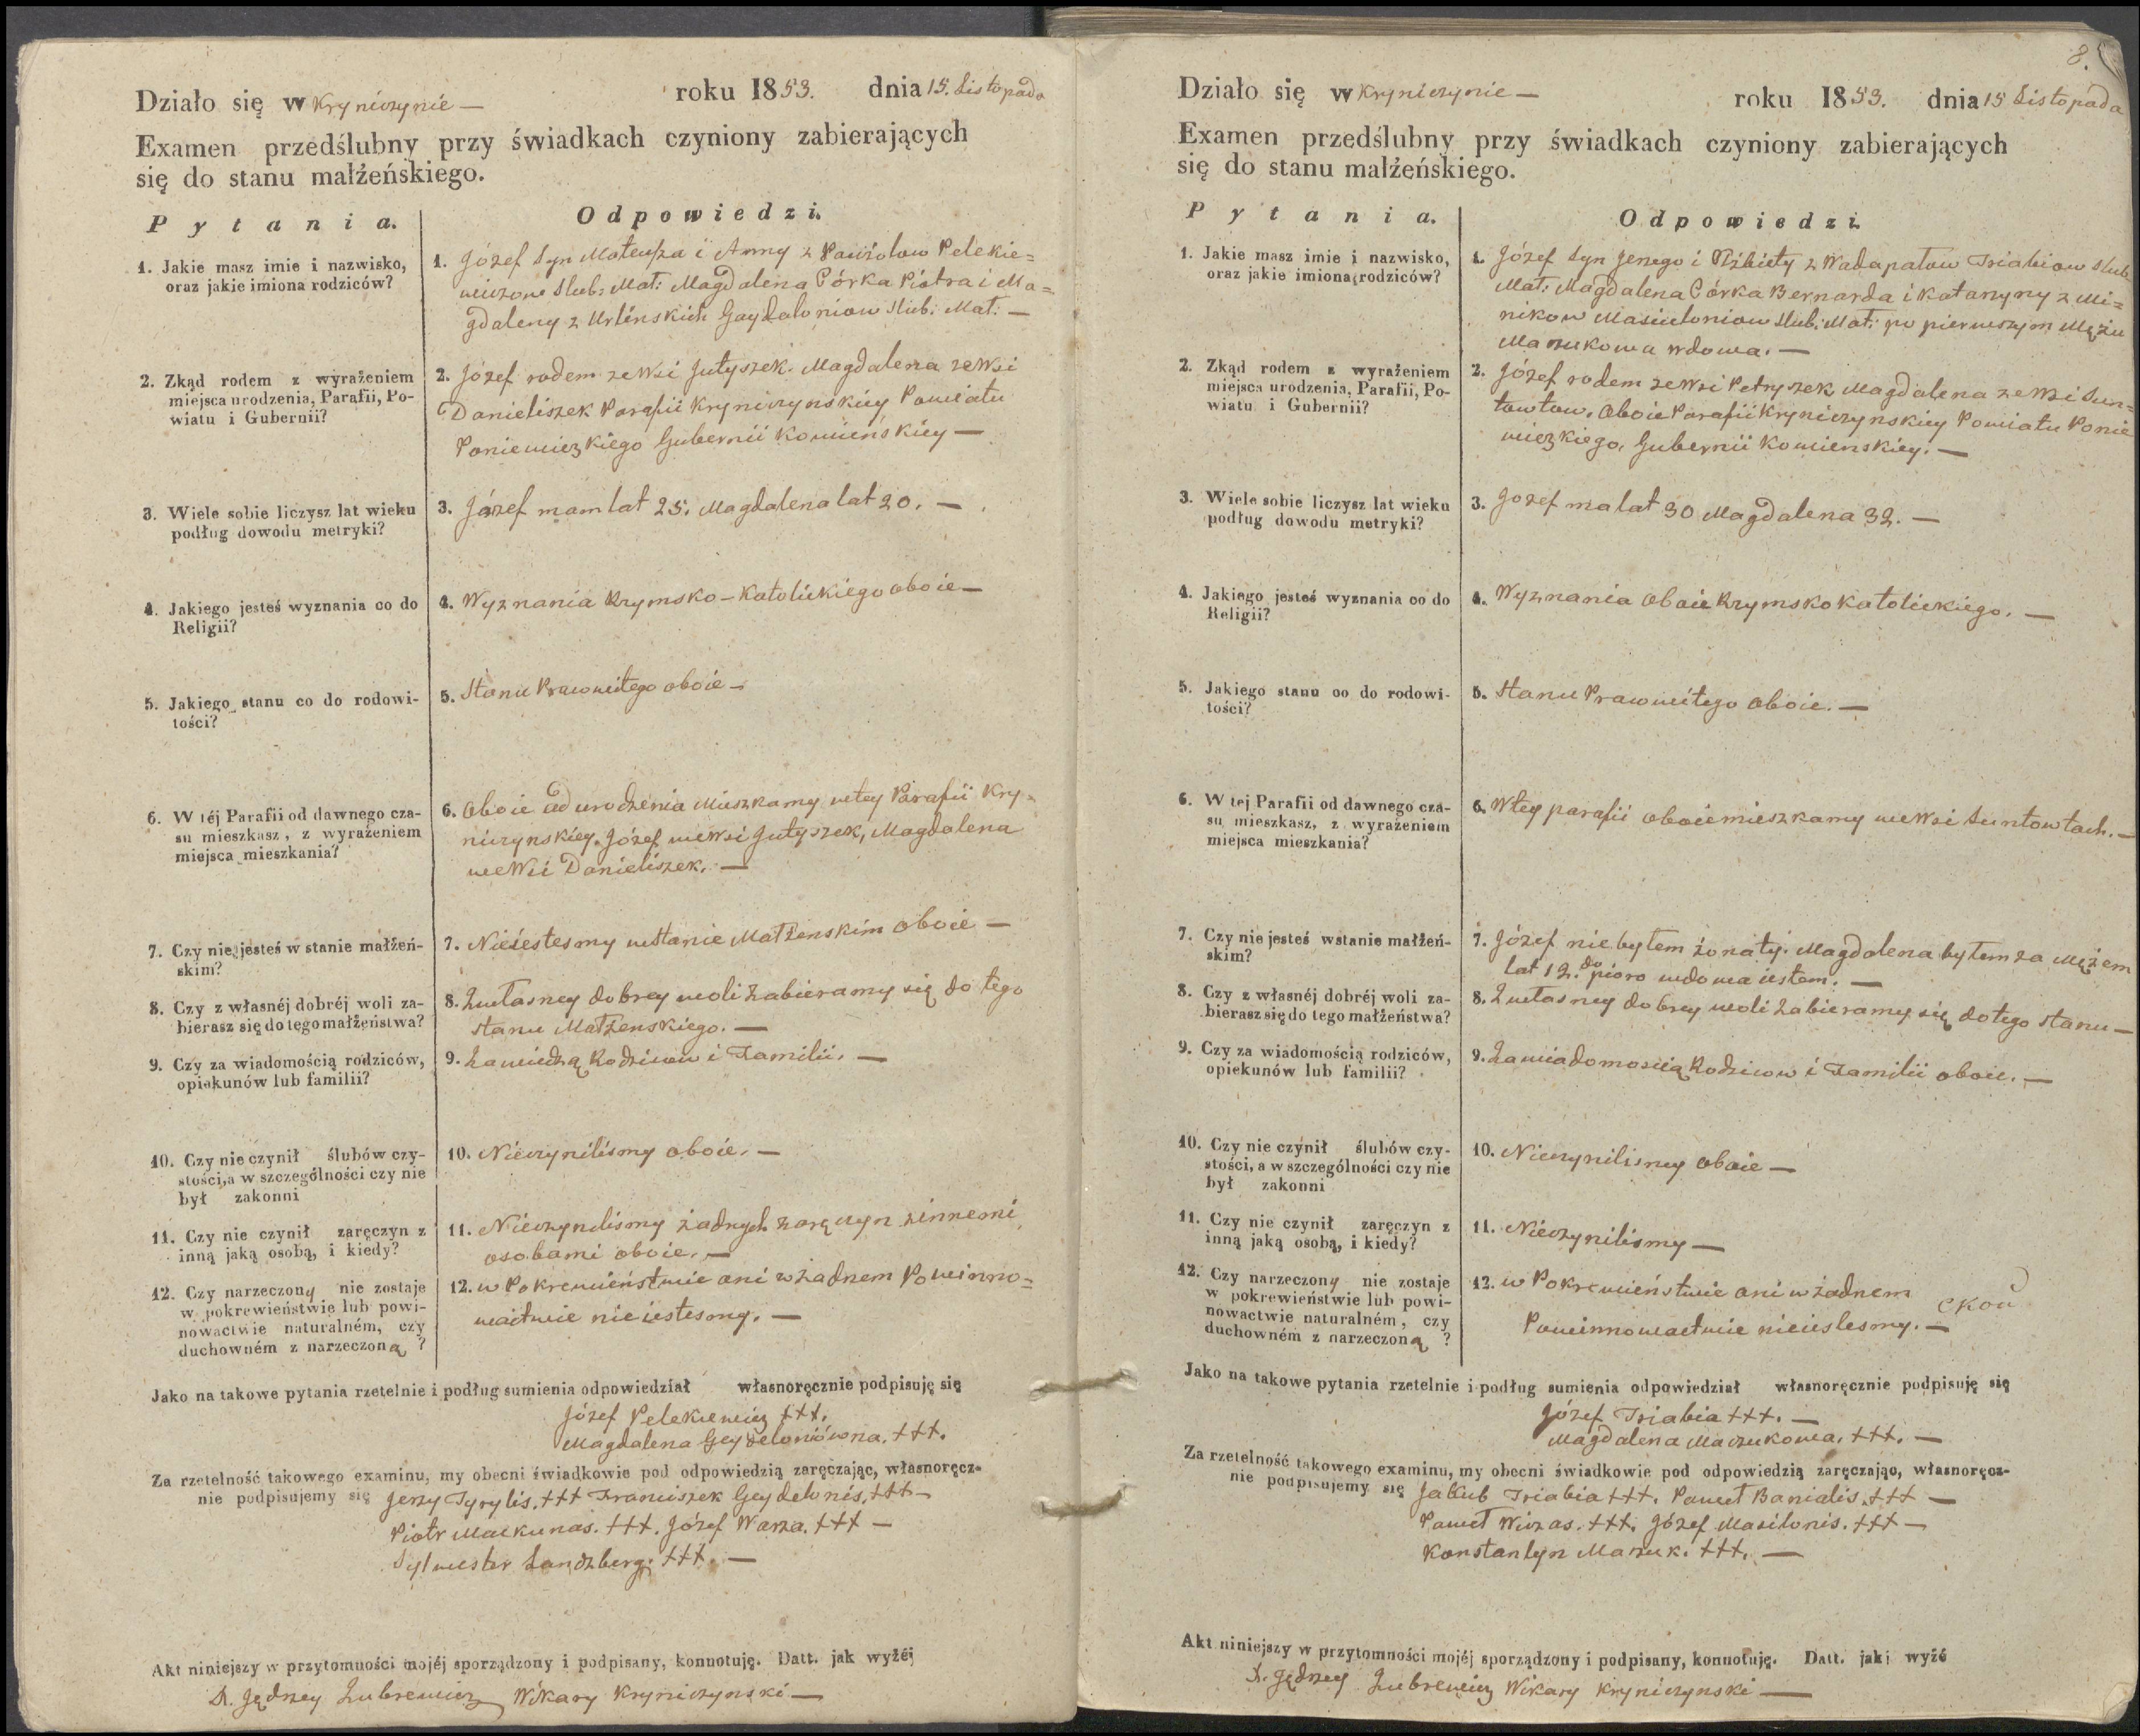 Działo się w Kryniczynie — roku 1853. dnia 15. Listopada
Examen przedślubny przy świadkach czyniony zabierających
się do stanu małżeńskiego.
Pytania.
Odpowiedzi.
1. Jakie masz imie i nazwisko,
oraz jakie imiona rodziców?
1. Józef Syn Mateusza i Anny z Pawiołow Pelekie=
wiczow Slub: Mał: Magdalena Córka Piotra i Ma=
gdaleny z Urlinskich Gaydaloniow Slub: Mał: —
2. Zkąd rodem z wyrażeniem
miejsca urodzenia, Parafii, Po-
wiatu i Gubernii?
2. Józef rodem zewsi Jutyszek. Magdalena zewsi
Danieliszek Parafii Kryniczynskiey Powiatu
Poniewiezkiego Gubernii Kowienskiey —
3. Wiele sobie liczysz lat wieku
podług dowodu metryki?
3. Józef mam lat 25. Magdalena lat 20. —
4. Jakiego jesteś wyznania co do
Religii?
4. Wyznania Rzymsko-Katolickiego oboie —
5. Jakiego stanu co do rodowi-
tości?
5. Stanu Prawowitego oboie —
6. W téj Parafii od dawnego cza-
su mieszkasz, z wyrażeniem
miejsca mieszkania?
6. Oboie od urodzenia mieszkamy wtey Parafii Kry-
niczynskiey. Józef wewsi Jutyszek, Magdalena
wewsi Danieliszek. —
7. Czy nie jesteś w stanie małżeń-
skim?
7. Nieiestesmy wstanie Małżenskim oboie —
8. Czy z własnéj dobréj woli za-
bierasz się do tego małżeństwa?
8. Zwłasney dobrey woli zabieramy się do tego
stanu Małżenskiego. —
9. Czy za wiadomością rodziców,
opiekunów lub familii?
9. Zawiedzą Rodzicow i Familii. —
10. Czy nie czynił ślubów czy-
stości, a w szczególności czy nie
był zakonni
10. Nieczynilismy oboie. —
11. Czy nie czynił zaręczyn z
inną jaką osobą, i kiedy?
11. Nieczynilismy żadnych zaręczyn zinnemi
osobami oboie. —
12. Czy narzeczony nie zostaje
w pokrewieństwie lub powi-
nowactwie naturalném, czy
duchowném z narzeczoną ?
12. w Pokrewieństwie ani w żadnem Powinno=
wactwie nieiestesmy. —
Jako na takowe pytania rzetelnie i podług sumienia odpowiedział własnoręcznie podpisuję się
Józef Pelekiewicz +++.
Magdalena Geydeloniówna. +++.
Za rzetelność takowego examinu, my obecni świadkowie pod odpowiedzią zaręczając, własnoręcz-
nie podpisujemy się Jerzy Tyrylis. +++ Franciszek Geydelonis. +++ —
Piotr Mackunas. +++. Józef Warza. +++ —
Sylwester Landzberg: +++. —
Akt niniejszy w przytomności mojéj sporządzony i podpisany, konnotuję. Datt. jak wyżéj
X. Jędrzey Zubrewicz Wikary Kryniczynski —
8.
Działo się w Kryniczynie — roku 1853. dnia 15 Listopada
Examen przedślubny przy świadkach czyniony zabierających
się do stanu małżeńskiego.
Pytania.
Odpowiedzi.
1. Jakie masz imie i nazwisko,
oraz jakie imiona rodziców?
1. Józef Syn Jerzego i Elżbiety z Wadapałow Triabiow Slub
Mał: Magdalena Córka Bernarda i Katarzyny z Mi=
nikow Masiuloniow Slub: Mał: po pierwszym Mężu
Maczukowa wdowa. —
2. Zkąd rodem z wyrażeniem
miejsca urodzenia, Parafii, Po-
wiatu i Gubernii?
2. Józef rodem zewsi Petryszek Magdalena zewsi Sun=
towtow. Oboie Parafii Kryniczynskiey Powiatu Ponie
wiezkiego, Gubernii Kowienskiey. —
3. Wiele sobie liczysz lat wieku
podług dowodu metryki?
3. Jozef ma lat 30 Magdalena 32. —
4. Jakiego jesteś wyznania co do
Religii?
4. Wyznania Oboie Rzymsko Katolickiego. —
5. Jakiego stanu co do rodowi-
tości?
5. Stanu Prawowitego Oboie. —
6. W tej Parafii od dawnego cza-
su mieszkasz, z wyrażeniem
miejsca mieszkania?
6. Wtey parafii oboie mieszkamy wewsi Suntowtach. —
7. Czy nie jesteś wstanie małżeń-
skim?
7. Józef niebyłem żonaty. Magdalena byłam za Mężem
lat 12. dopioro wdowa iestem. —
8. Czy z własnéj dobréj woli za-
bierasz się do tego małżeństwa?
8. Zwłasney dobrey woli zabieramy się dotego stanu —
9. Czy za wiadomością rodziców,
opiekunów lub familii?
9. Zawiadomoscią Rodzicow i Familii oboie. —
10. Czy nie czynił ślubów czy-
stości, a w szczególności czy nie
był zakonni
10. Nieczynilismy oboie —
11. Czy nie czynił zaręczyn z
inną jaką osobą, i kiedy?
11. Nieczynilismy —
12. Czy narzeczony nie zostaje
w pokrewieństwie lub powi-
nowactwie naturalném, czy
duchowném z narzeczoną ?
12. w Pokrewieństwie ani w żadnem
Powinnowactwie nieiestesmy. —
Jako na takowe pytania rzetelnie i podług sumienia odpowiedział własnoręcznie podpisuję się
Józef Triabia +++. —
Magdalena Maczukowa. +++. —
Za rzetelność takowego examinu, my obecni świadkowie pod odpowiedzią zaręczając, własnoręcz-
nie podpisujemy się Jakub Triabia +++. Paweł Banialis. +++ —
Paweł Wiczas. +++. Józef Masilonis. +++ —
Konstantyn Maczuk. +++. —
Akt niniejszy w przytomności mojéj sporządzony i podpisany, konnotuję. Datt. jak wyżé
X. Jędrzey Zubrewicz Wikary Kryniczynski —